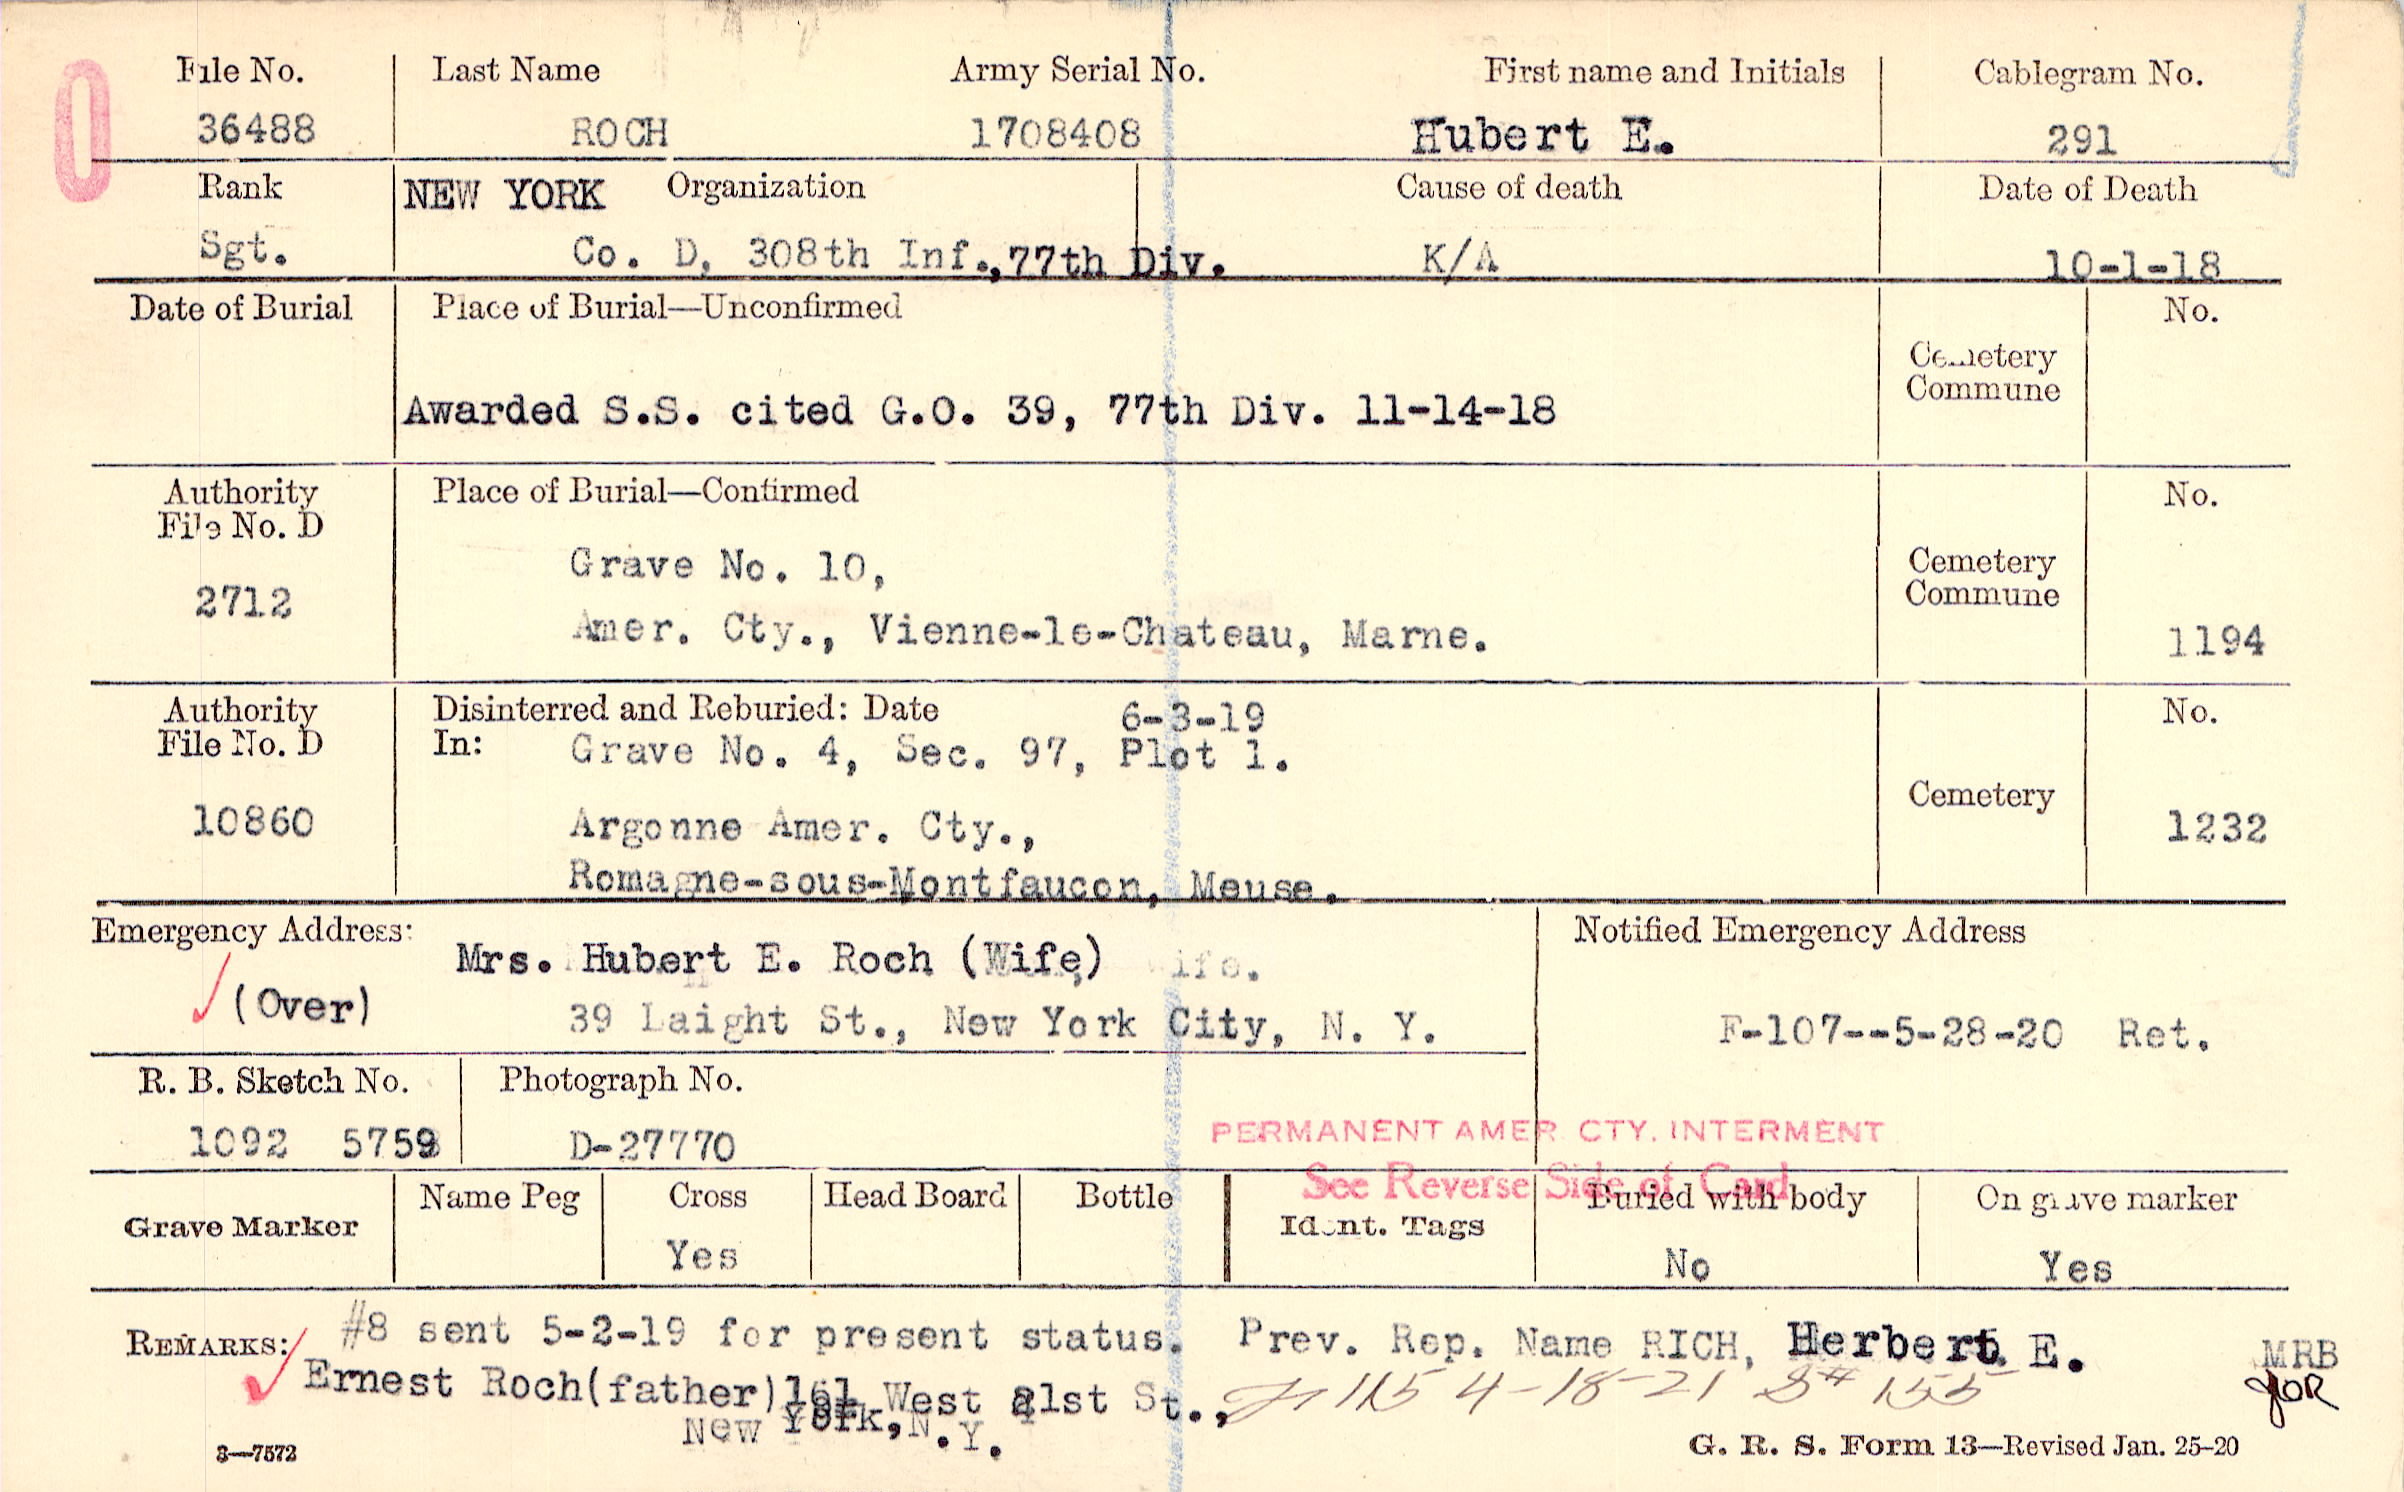 File No. Last Name Army Serial No. First name and Initials Cablegram No.
36488 ROCH 1708408 Hubert E. 291
Rank NEW YORK Organization Cause of death Date of Death
Sgt. Co. D, 308th Inf., 77th Div. K/A 10-1-18
Date of Burial Place of Burial—Unconfirmed No.
Cemetery
Commune
Awarded S.S. cited G.O. 39, 77th Div. 11-14-18
Authority Place of Burial—Confirmed No.
File No. D
Grave No. 10, Cemetery
2712 Commune
Amer. Cty., Vienne-le-Chateau, Marne. 1194
Authority Disinterred and Reburied: Date 6-3-19 No.
File No. D In: Grave No. 4, Sec. 97, Plot 1.
Cemetery
10860 Argonne Amer. Cty., 1232
Romagne-sous-Montfaucon, Meuse.
Emergency Address: Notified Emergency Address
Mrs. Hubert E. Roch (Wife)
(Over) 39 Laight St., New York City, N. Y. F-107--5-28-20 Ret.
R. B. Sketch No. Photograph No.
1092 5759 D-27770
PERMANENT AMER CTY. INTERMENT
See Reverse Side of Card
Grave Marker Name Peg Cross Head Board Bottle Ident. Tags Buried with body On grave marker
Yes No Yes
REMARKS: #8 sent 5-2-19 for present status. Prev. Rep. Name RICH, Herbert E. MRB
Ernest Roch(father)161 West 21st St., 115 4-18-21 S# 155 JOR
New York, N.Y.
3—7572 G. R. S. Form 13—Revised Jan. 25-20